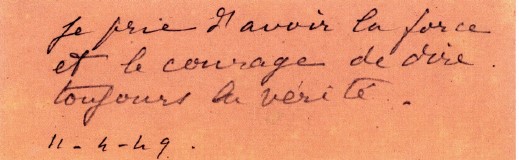 Je prie d'avoir la force
et le courage de dire.
toujours la vérité.
11-4-49.